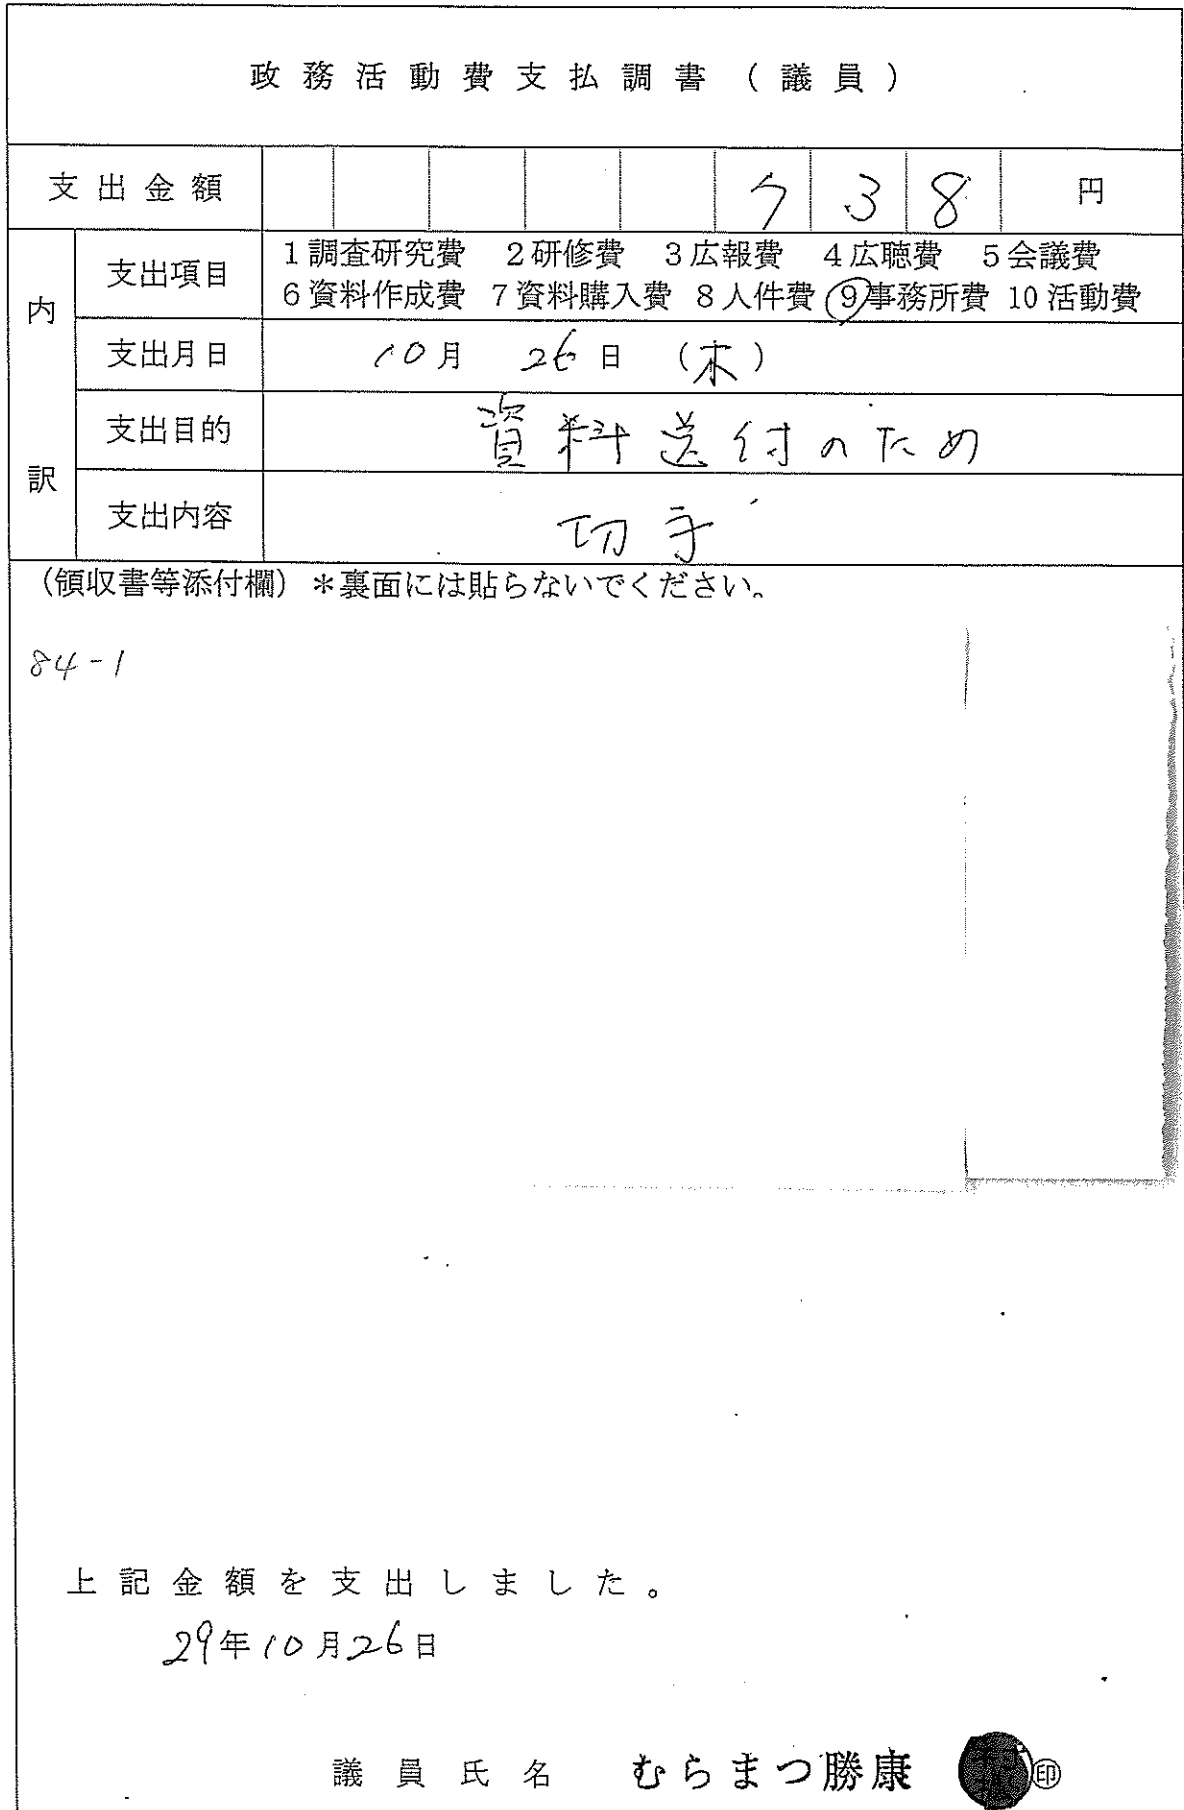 政務活動費支払調書（議員）
支出金額 738 円
内訳
支出項目 1調査研究費 2研修費 3広報費 4広聴費 5会議費
6資料作成費 7資料購入費 8人件費 ⑨事務所費 10活動費
支出月日 10月 26日 (木)
支出目的 資料送付のため
支出内容 切手
（領収書等添付欄）＊裏面には貼らないでください。
84-1
上記金額を支出しました。
29年10月26日
議員氏名 むらまつ勝康 ㊞